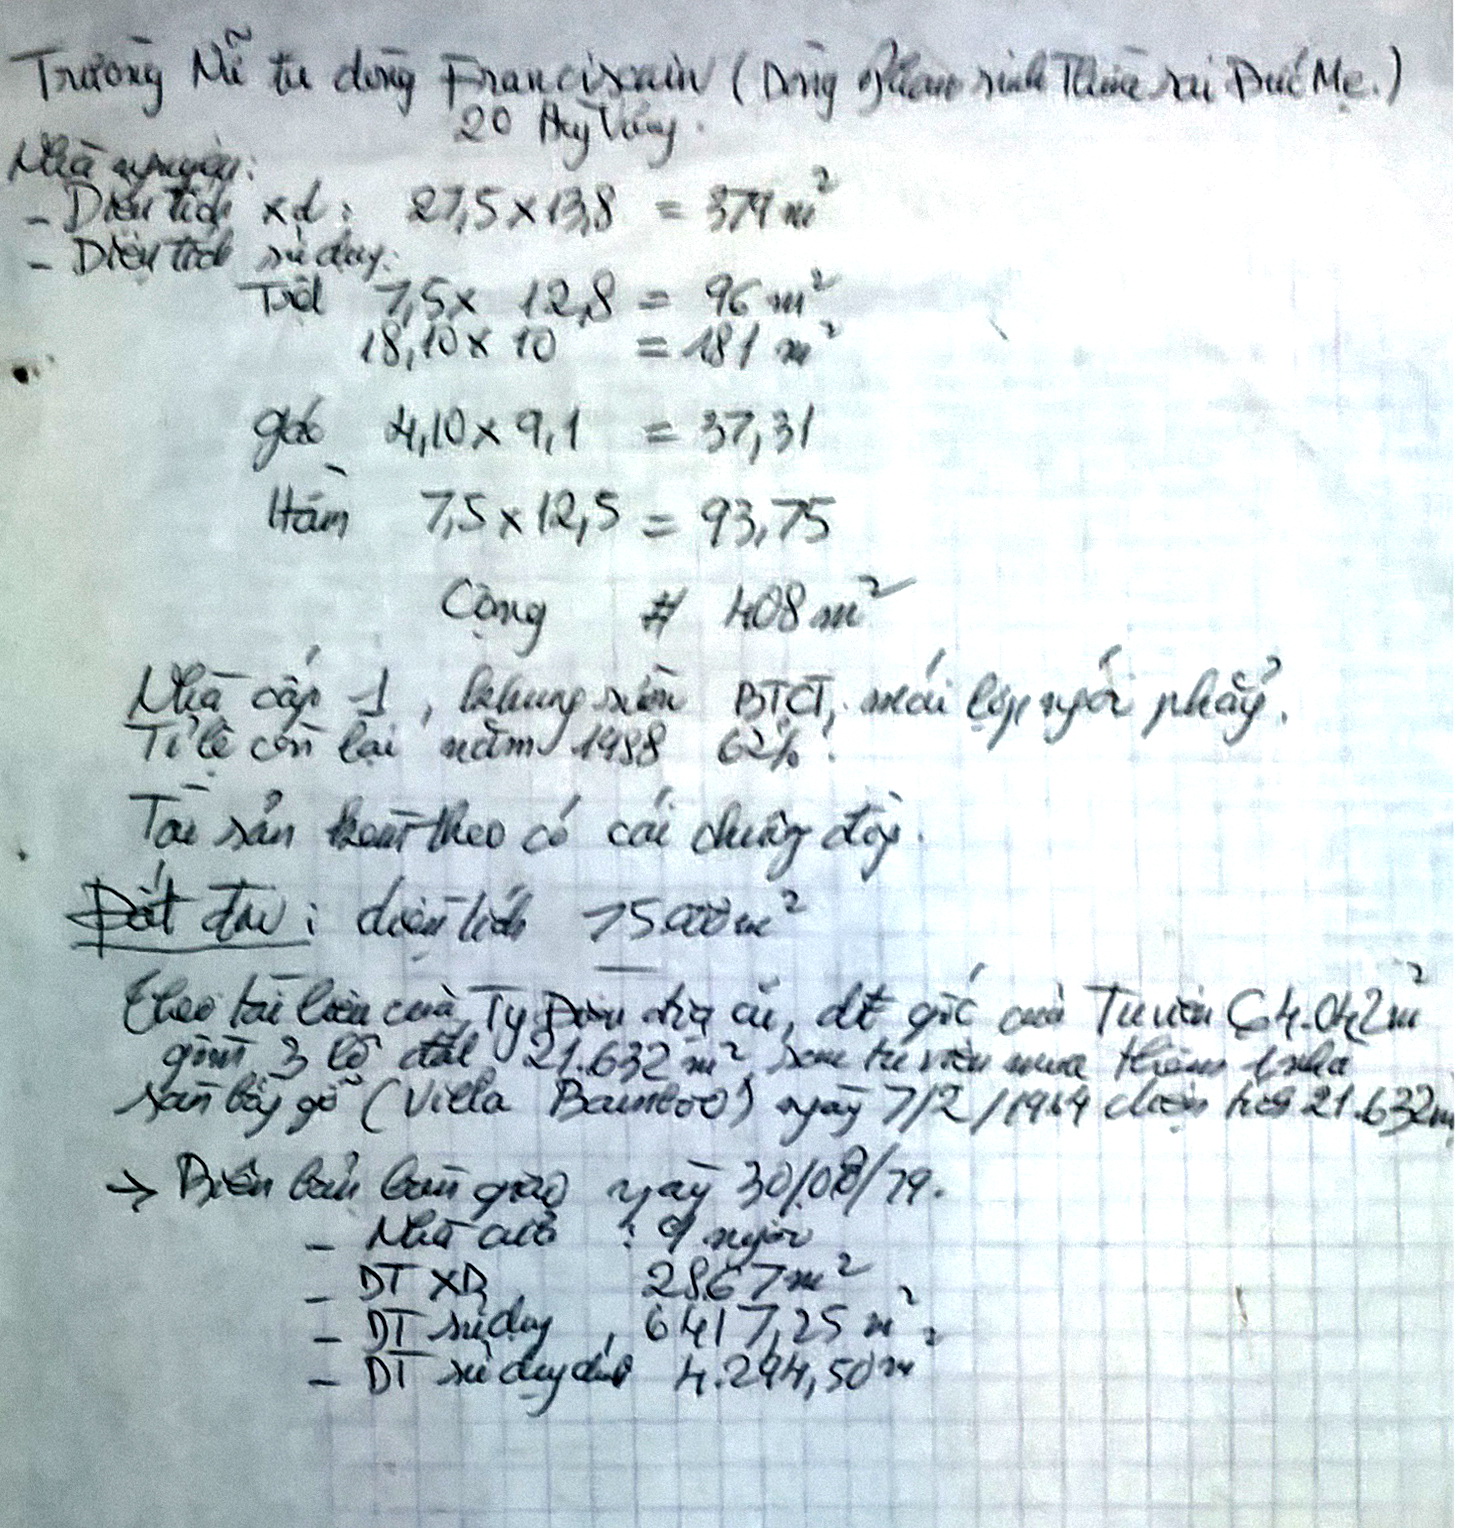 Trường Nữ tu dòng Franciscain (Dòng Phan sinh Thừa sai Đức Mẹ.)
20 Hùng Vương.
Nhà nguyện:
- Diện tích xd: 27,5 x 13,8 = 379 m²
- Diện tích sử dụng:
Trệt 7,5 x 12,8 = 96 m²
18,10 x 10 = 181 m²
gác 4,10 x 9,1 = 37,31
Hầm 7,5 x 12,5 = 93,75
Cộng # 408 m²
Nhà cấp 1, khung sườn BTCT, mái lợp ngói phẳng.
Tỉ lệ còn lại năm 1988 62%.
Tài sản kèm theo có cái chuông đồng.
Đất đai: diện tích 15.000 m²
Theo tài liệu của Ty Điền địa cũ, dt gốc của Tu viện 64.042 m²
gồm 3 lô đất 21.632 m², sau tu viện mua thêm 1 nhà
sàn bằng gỗ (Villa Bamboo) ngày 7/2/1964 diện tích 21.632 m
→ Biên bản bàn giao ngày 30/08/79.
- Nhà : 9 ngôi
- DT XD 2867 m²
- DT sử dụng, 6417,25 m²
- DT sử dụng 4.294,50 m²